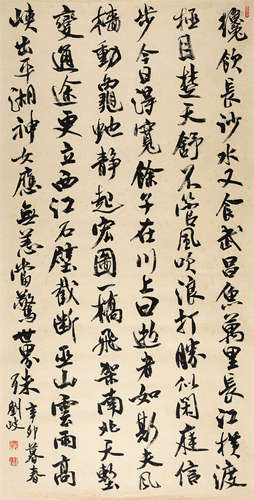 纔飲長沙水又食武昌魚萬里長江橫渡
極目楚天舒不管風吹浪打勝似閑庭信
步今日得寬餘子在川上曰逝者如斯夫風
檣動龜虵静起宏圖一橋飛架南北天塹
變通途更立西江石壁截斷巫山雲雨高
峽出平湖神女應無恙當驚世界殊 辛卯暮春
劉